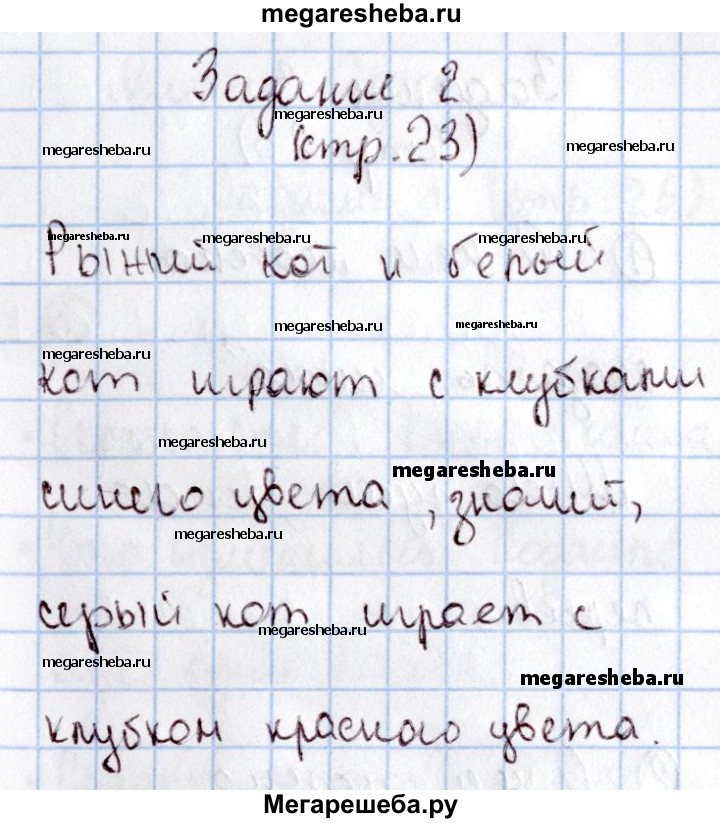 megaresheba.ru
Задание 2
megaresheba.ru
(стр.23)
megaresheba.ru megaresheba.ru
megaresheba.ru megaresheba.ru megaresheba.ru
Рыжий кот и белый
megaresheba.ru megaresheba.ru
кот играют с клубками
megaresheba.ru
megaresheba.ru
синего цвета, значит,
megaresheba.ru
серый кот играет с
megaresheba.ru
megaresheba.ru
megaresheba.ru
клубком красного цвета.
Мегарешеба.ру